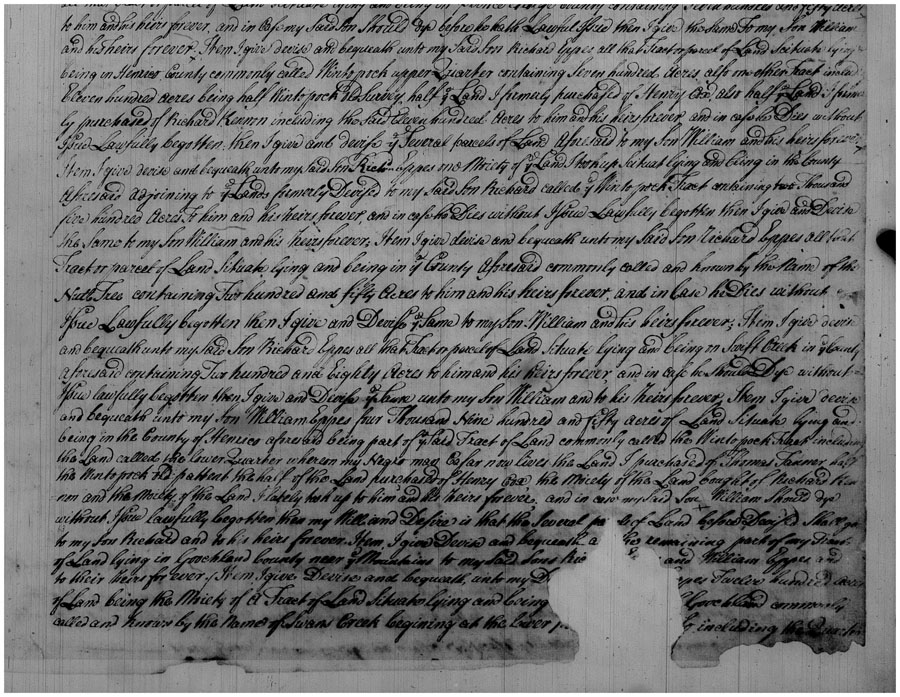 to him and his heirs forever, and in case my Said Son Should dye before he hath Lawful Issue then I give the Same To my Son William
and his heirs forever. Item I give devise and bequeath unto my Said Son Richard Eppes all that Tract or parcel of Land Scituate lying
being in Henrico County commonly called Wintopock upper Quarter containing Seven hundred Acres, also another Tract
Eleven hundred Acres being half Wintopock Survey, half ye Land I formerly purchased of Henry Cox, also half ye Land I forme
ly purchased of Richard Kennon including the Said Eleven hundred Acres to him and his heirs forever and in case he Dies without
Issue Lawfully begotten then I give and devise ye Several parcels of Land Aforesaid to my Son William and his heirs forever
Item I give devise and bequeath unto my Said Son Richd Eppes one Moiety of ye Land took up Scituat lying and being in the County
Aforesaid adjoining to ye Lands formerly Devised to my Said Son Richard called ye Wintopock Tract containing two Thousand
five hundred Acres To him and his heirs forever and in case he Dies without Issue Lawfully begotten then I give and Devise
the Same to my Son William and his heirs forever; Item I give devise and bequeath unto my Said Son Richard Eppes all that
Tract or parcel of Land Situate lying and being in ye County Aforesaid commonly called and known by the Name of the
Nutt Tree containing Two hundred and fifty Acres to him and his heirs forever, and in Case he Dies without
Issue Lawfully begotten then I give and Devise ye Same to my Son William and his heirs forever; Item I give devise
and bequeath unto my Said Son Richard Eppes all that Tract or parcel of Land Situate lying and being on Swift Creek in ye County
aforesaid containing Two hundred and Eighty Acres to him and his heirs forever and in case he Should Dye without
Issue lawfully begotten then I give and Devise ye Same unto my Son William and to his Heirs forever, Item I give devise
and bequeath unto my Son William Eppes four Thousand Nine hundred and fifty acres of Land Situate lying and
being in the County of Henrico aforesaid being part of ye Said Tract of Land commonly called the Wintopock Tract including
the Land called the lower Quarter whereon my Negro man Cæsar now lives the Land I purchased of Thomas Farmer, half
the Wintopock old pattent the half of the Land purchased of Henry Cox, the Moiety of the Land bought of Richard Ken
non and the Moiety of the Land I lately took up to him and his heirs forever, and in case my Said Son William Should dye
without Issue lawfully begotten then my Will and Desire is that the Several of Land before Devised Shall go
to my Son Richard and to his heirs forever. Item, I give Devise and bequeath a the remaining part of my Tract
of Land lying in Goochland County near ye Mountains to my Said Sons Ric and William Eppes and
to their heirs forever, Item I give Devise and bequeath unto my D Twelve hundred acres
of Land being the Moiety of a Tract of Land Situate lying and being Goochland commonly
called and known by the Name of Swans Creek begining at the lower including the